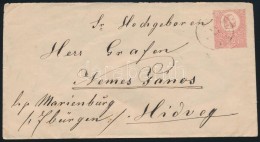 Sr Hochgeboren
Herr Grafen
Nemes János
p/p Marienburg
p/ Siebenbürgen // Hidveg